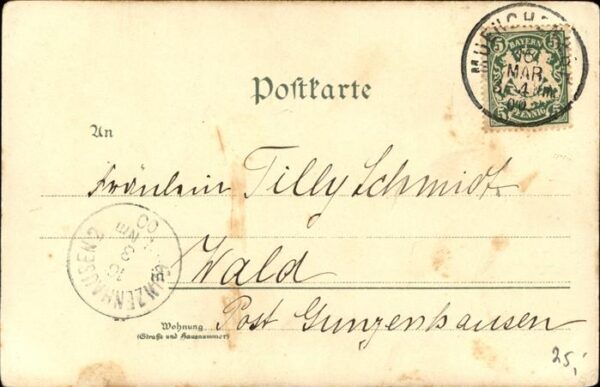 Postkarte
MUENCHEN
BAYERN
5 5
16
MAR.
3-4Nm
00
PFENNIG
An
Fräulein Tilly Schmidt
Wald
Post Gunzenhausen
GUNZENHAUSEN
16
3
Nm
00
Wohnung
(Straße und Hausnummer)
25,-